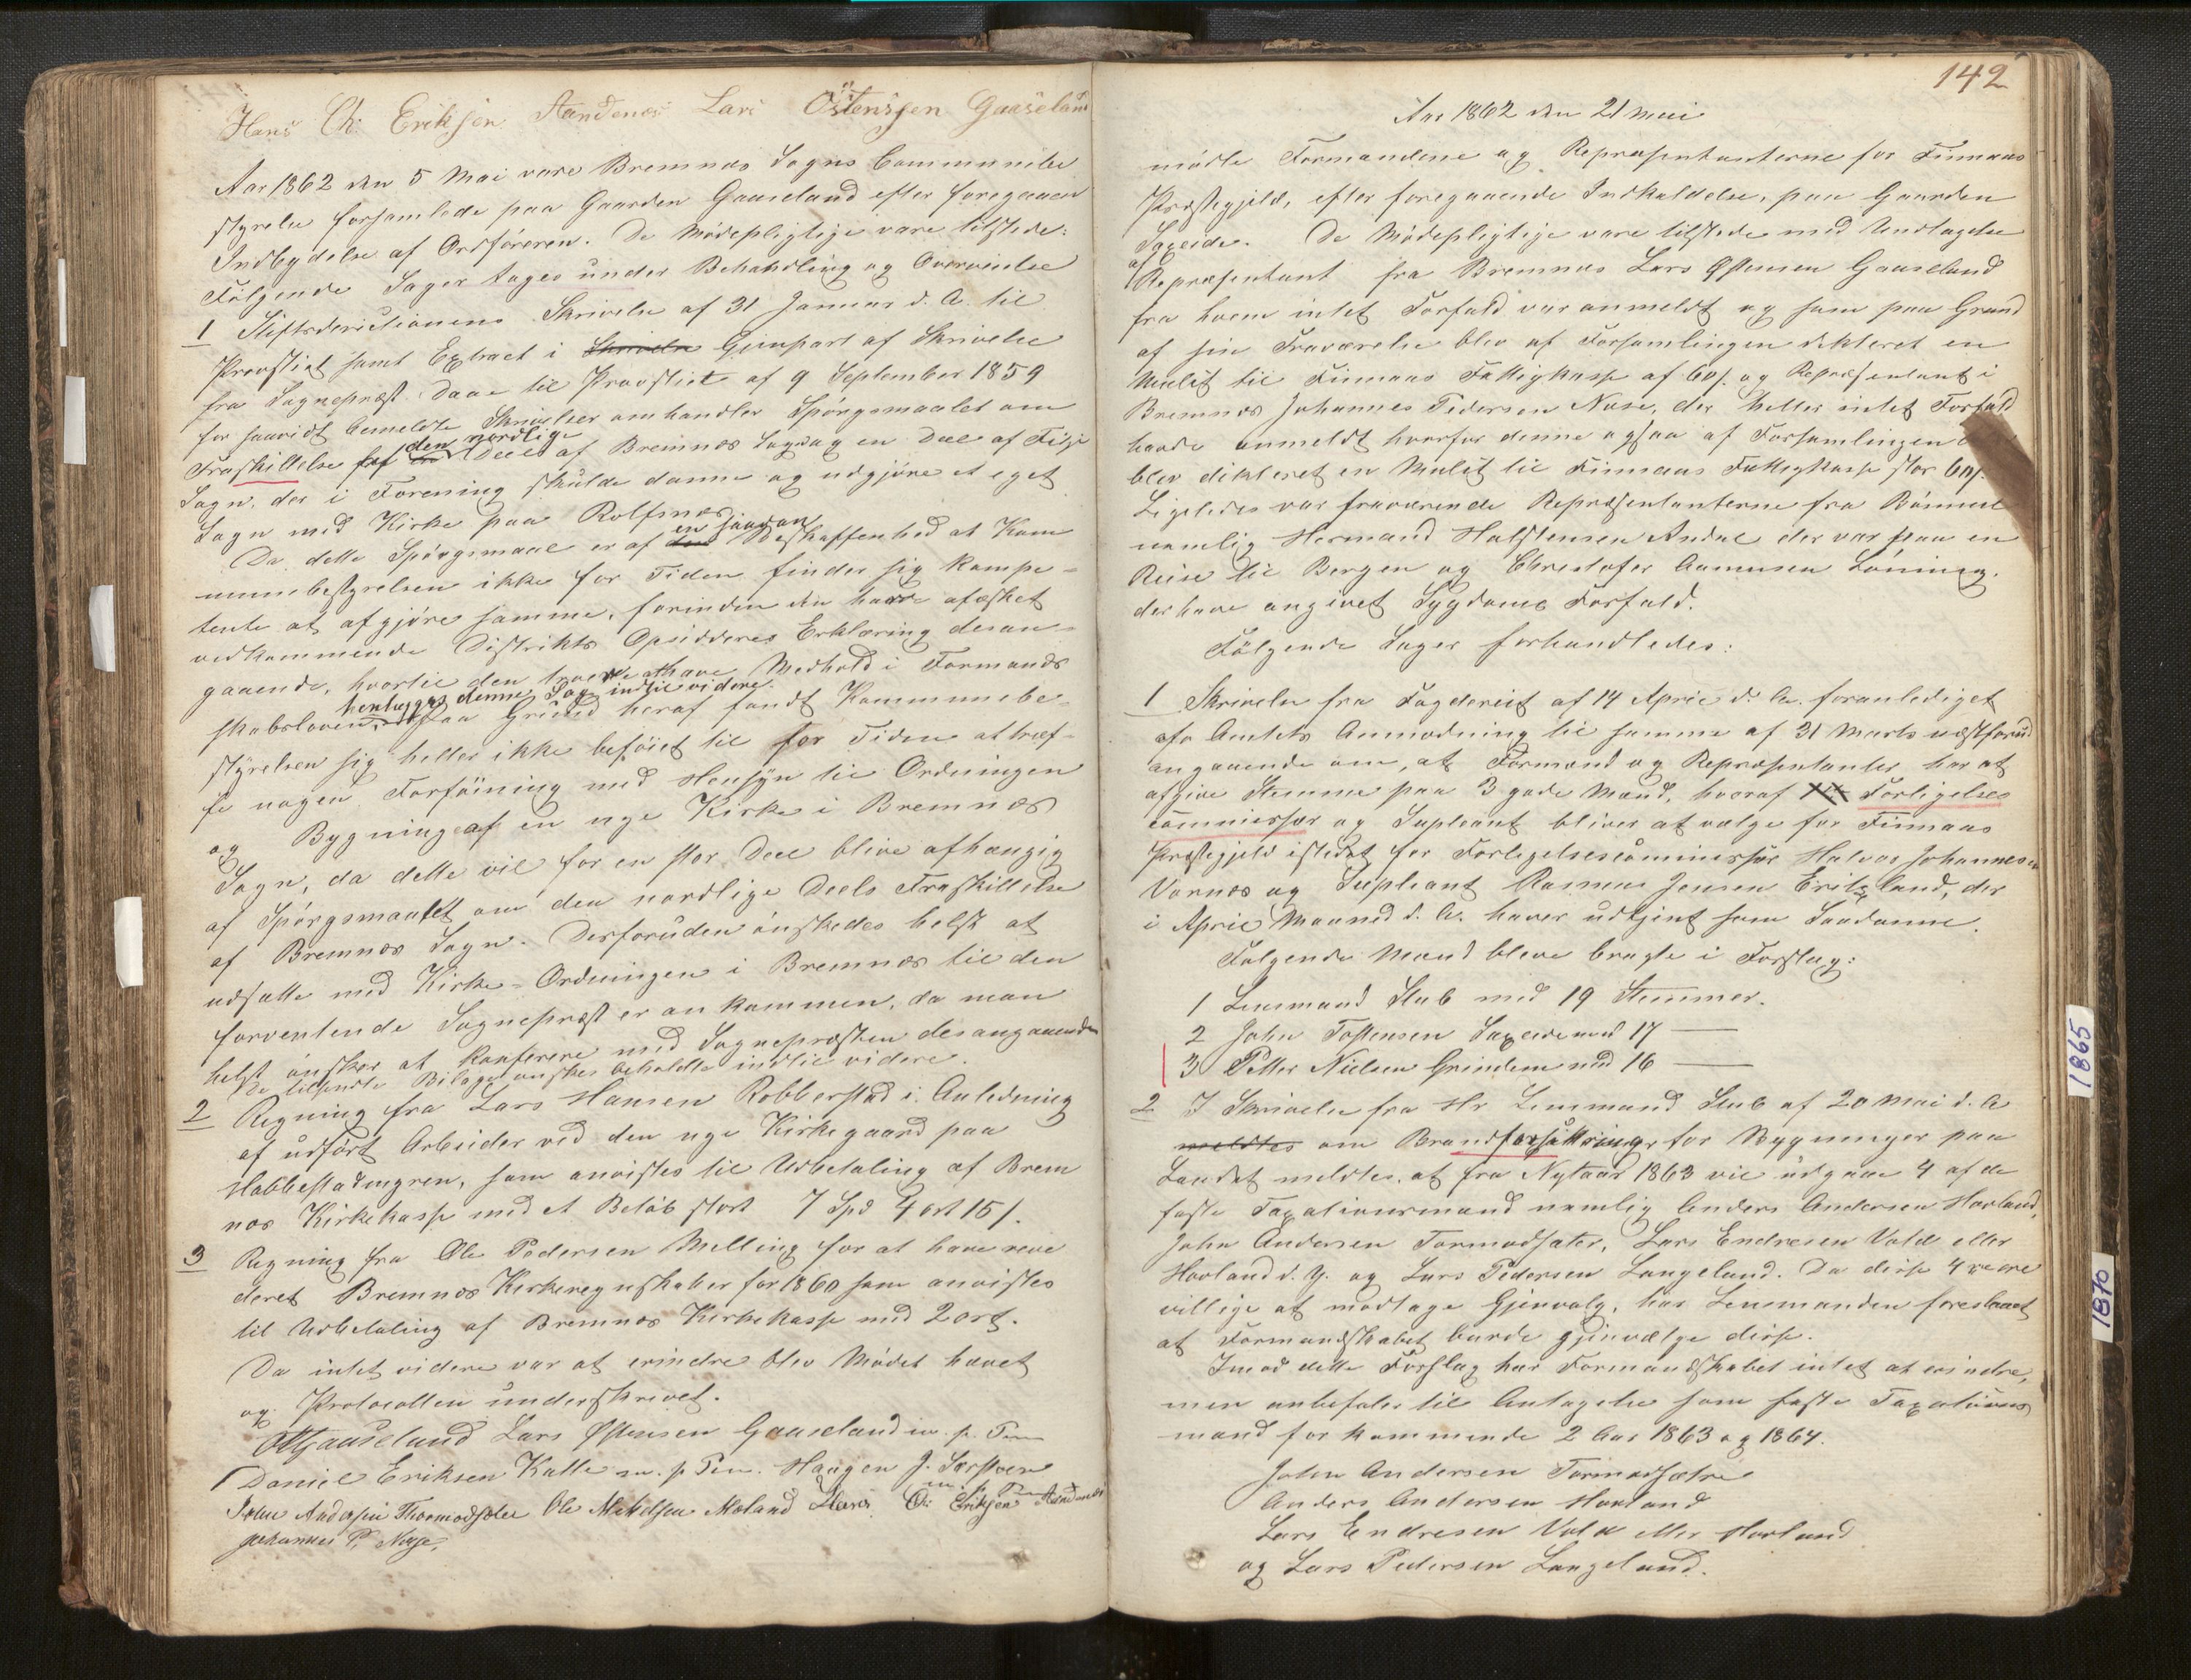 Hans Ch: Eriksen Aandenæs Lars Östensen Gaaseland
Aar 1862 den 5 Mai vare Bremnæs Sogns Communebe
styrelse forsamlede paa Gaarden Gaaseland efter foregaaen
Indbydelse af Ordföreren. De Mödepligtige vare tilstede.
Fölgende Sager toges under Behandling og Overveielse
1 Stiftsdirectionens Skrivelse af 31 Januar d. A. til
Provstiet samt Extract i Skrivelse Genpart af Skrivelse
fra Sognepræst Daae til Provstiet af 9 September 1859
for saavidt bemeldte Skrivelser omhandler Spörgsmaalet om
Fraskillelse af den nordlige Deel af Bremnæs Sogn og en Deel af Fitje
Sogn, der i Forening skulde danne og udgjöre et eget
Sogn med Kirke paa Rolfsnæs.
Da dette Spörgsmaal er af en saadan Beskaffenhed at Kom
munebestyrelsen ikke for Tiden finder sig kompe-
tente at afgjöre samme, forinden den havde afæsket
vedkommende Distrikts Opsidderes Erklæring desan-
gaaende, hvortil den troede at have Medhold i Formands
skabsloven, henlægges denne Sag indtil videre.
Paa Grund heraf fandt Kommunebe-
styrelsen sig heller ikke beföiet til for Tiden at træf-
fe nogen Forföining med Hensyn til Ordningen
og Bygning af en nye Kirke i Bremnæs
Sogn, da dette vil for en stor Deel blive afhængig
af Spörgsmaalet om den nordlige Deels Fraskillelse
af Bremnæs Sogn. Desforuden önskedes helst at
udsætte med Kirke-Ordningen i Bremnæs til den
forventende Sognepræst er ankommen, da man
helst önsker at konferere med Sognepræsten desangaaende
De tilsendte Bilage önskes beholdte indtil videre.
2 Regning fra Lars Hansen Robberstad i Anledning
af udfört Arbeider ved den nye Kirkegaard paa
Habbestadmyren, som anvistes til Udbetaling af Brem
næs Kirkekasse med et Belöb stort 7 Spd 4 ort 15 s.
3 Regning fra Ole Pedersen Melling for at have revi
deret Bremnæs Kirkeregnskaber for 1860 som anvistes
til Udbetaling af Bremnæs Kirkekasse med 2 ort.
Da intet videre var at erindre blev Mödet hævet
og Protocollen underskrevet.
Gaaseland Lars Östensen Gaaseland m. p. Pen
Daniel Eriksen Kalle m. p. Pen. Haagen J.
m. p. Pen
John Andersen Thormodsæter Ole Mikkelsen Mæland Hans Ch: Eriksen Aandenæs
Johannes P. Nese.
142
Aar 1862 den 21 Mai
mödte Formændene og Repræsentanterne for Finnaas
Præstegjeld, efter foregaaende Indkaldelse, paa Gaarden
Sexeide. De Mödepligtige vare tilstede med Undtagelse
af Repræsentant fra Bremnæs Lars Östensen Gaaseland
fra hvem intet Forfald var anmeldt og som paa Grund
af sin Fraværelse blev af Forsamlingen dikteret en
Mulct til Finnaas Fattigkasse af 60 s. og Repræsentant i
Bremnæs Johannes Pedersen Nese, der heller intet Forfald
havde anmeldt hvorfor denne ogsaa af Forsamlingen
blev dikteret en Mulct til Finnaas Fattigkasse stor 60 s.
Ligeledes var fraværende Repræsentanterne fra Bömmel
nemlig Hermund Halstensen Andal der var paa en
Reise til Bergen og Christofer Aamundsen Löning.
der have angivet Sygdoms Forfald.
Fölgende Sager forhandledes:
1 Skrivelse fra Fogderiet af 14 April d. A. foranlediget
af Amtets Anmodning til samme af 31 Marts næstforud
angaaende om, at Formænd og Repræsentanter har at
afgive Stemme paa 3 gode Mænd, hvoraf Forligelses
commissær og Supleant bliver at vælge for Finnaas
Præstegjeld istedet for Forligelsescommissær Halvor Johannesen
Vornæs og Supleant Rasmus Jensen Eritsland, der
i April Maaned d. A. haver udtjent som Saadanne.
Fölgende Mænd bleve bragte i Forslag:
1 Lensmand Stub med 19 Stemmer.
2 John Tostensen Sexeide med 17 —
3 Petter Nielsen Grindem med 16 —
2 I Skrivelse fra Hr Lensmand Stub af 20 Mai d. A
meldtes om Brandforsikringer for Bygninger paa
Landet meldtes, at fra Nytaar 1863 vil udgaae 4 af de
faste Taxationsmænd nemlig Anders Andersen Hovland,
John Andersen Tormodsæter, Lars Endresen Vold eller
Hovland d. y. og Lars Pedersen Langeland. Da disse 4 vare
villige at modtage Gjenvalg, har Lensmanden foreslaaet
at Formandskabet burde gjenvælge disse.
Imod dette Forslag har Formandskabet intet at erindre,
men anbefaler til Antagelse som faste Taxations
mænd for kommende 2 Aar 1863 og 1864.
John Andersen Tormodsætre
Anders Andersen Hovland
Lars Endresen Vold eller Hovland
og Lars Pedersen Langeland.
1865
1870